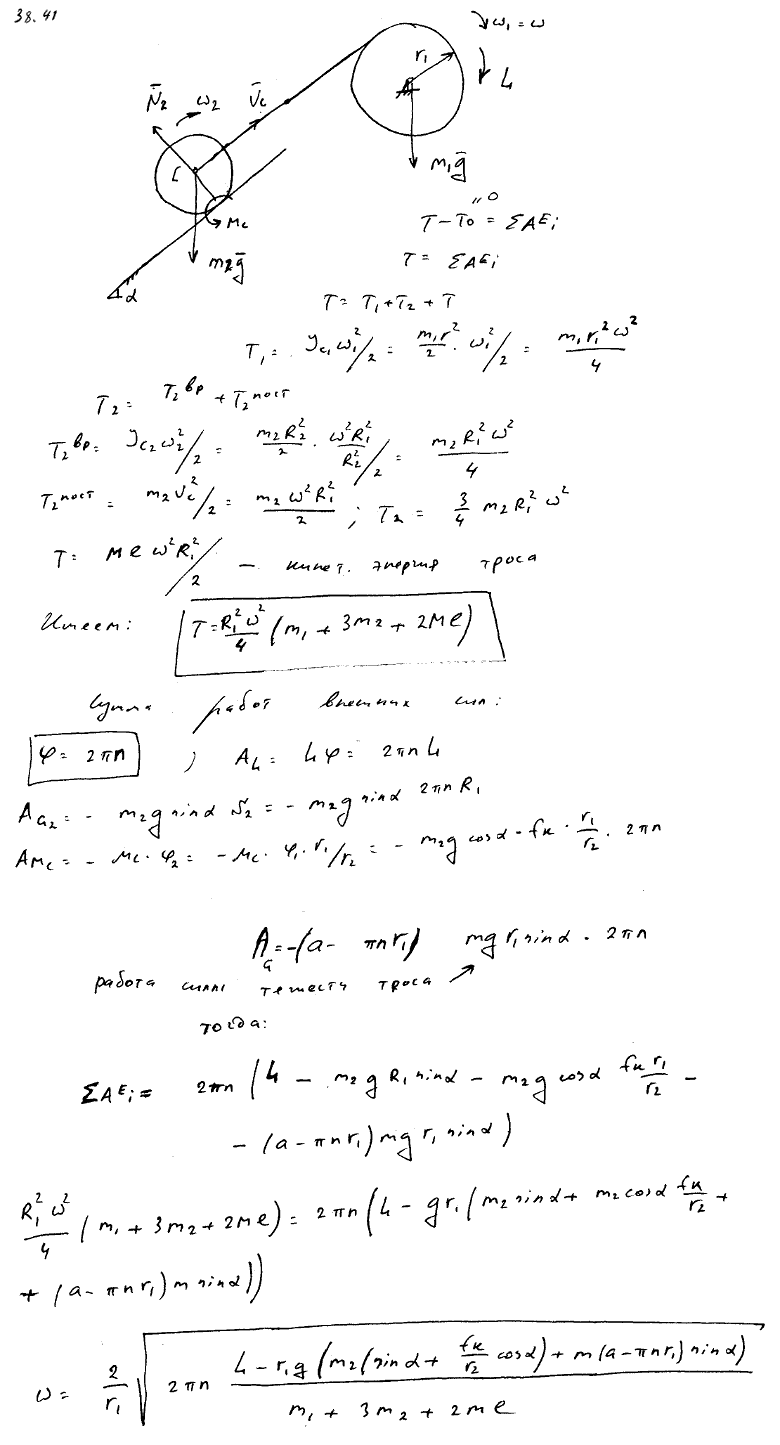 38.41
ω₁ = ω
r₁
L
A
N̄₂ ω₂ V̄c
C
m₁ḡ
Mc
m₂ḡ
α
T − T₀ = ΣAᴱi
"0
T = ΣAᴱi
T = T₁ + T₂ + T
T₁ = Jc₁ω₁²/2 = m₁r²/2 · ω₁²/2 = m₁r₁²ω²/4
T₂ = T₂ᵇᵖ + T₂ᵖᵒᶜᵗ
T₂ᵇᵖ = Jc₂ω₂²/2 = m₂R₂²/2 · ω²R₁²/R₂² /2 = m₂R₁²ω²/4
T₂ᵖᵒᶜᵗ = m₂Vc²/2 = m₂ω²R₁²/2 ; T₂ = 3/4 m₂R₁²ω²
T = Mℓω²R₁²/2 — кинет. энергия троса
Имеем: T = R₁²ω²/4 (m₁ + 3m₂ + 2Mℓ)
Сумма работ внешних сил:
φ = 2πn ; A_L = Lφ = 2πnL
A_G₂ = − m₂g sinα S₂ = − m₂g sinα 2πnR₁
A_Mc = − Mc · φ₂ = − Mc · φ₁ · r₁/r₂ = − m₂g cosα · fк · r₁/r₂ · 2πn
A_G = −(a − πnr₁) mg r₁ sinα · 2πn
работа силы тяжести троса
тогда:
ΣAᴱi = 2πn (L − m₂gR₁ sinα − m₂g cosα fк r₁/r₂ −
− (a − πnr₁) mg r₁ sinα)
R₁²ω²/4 (m₁ + 3m₂ + 2Mℓ) = 2πn (L − gr₁ (m₂ sinα + m₂ cosα fк/r₂ +
+ (a − πnr₁) m sinα))
ω = 2/r₁ √(2πn (L − r₁g (m₂(sinα + fк/r₂ cosα) + m(a − πnr₁) sinα))/(m₁ + 3m₂ + 2mℓ))